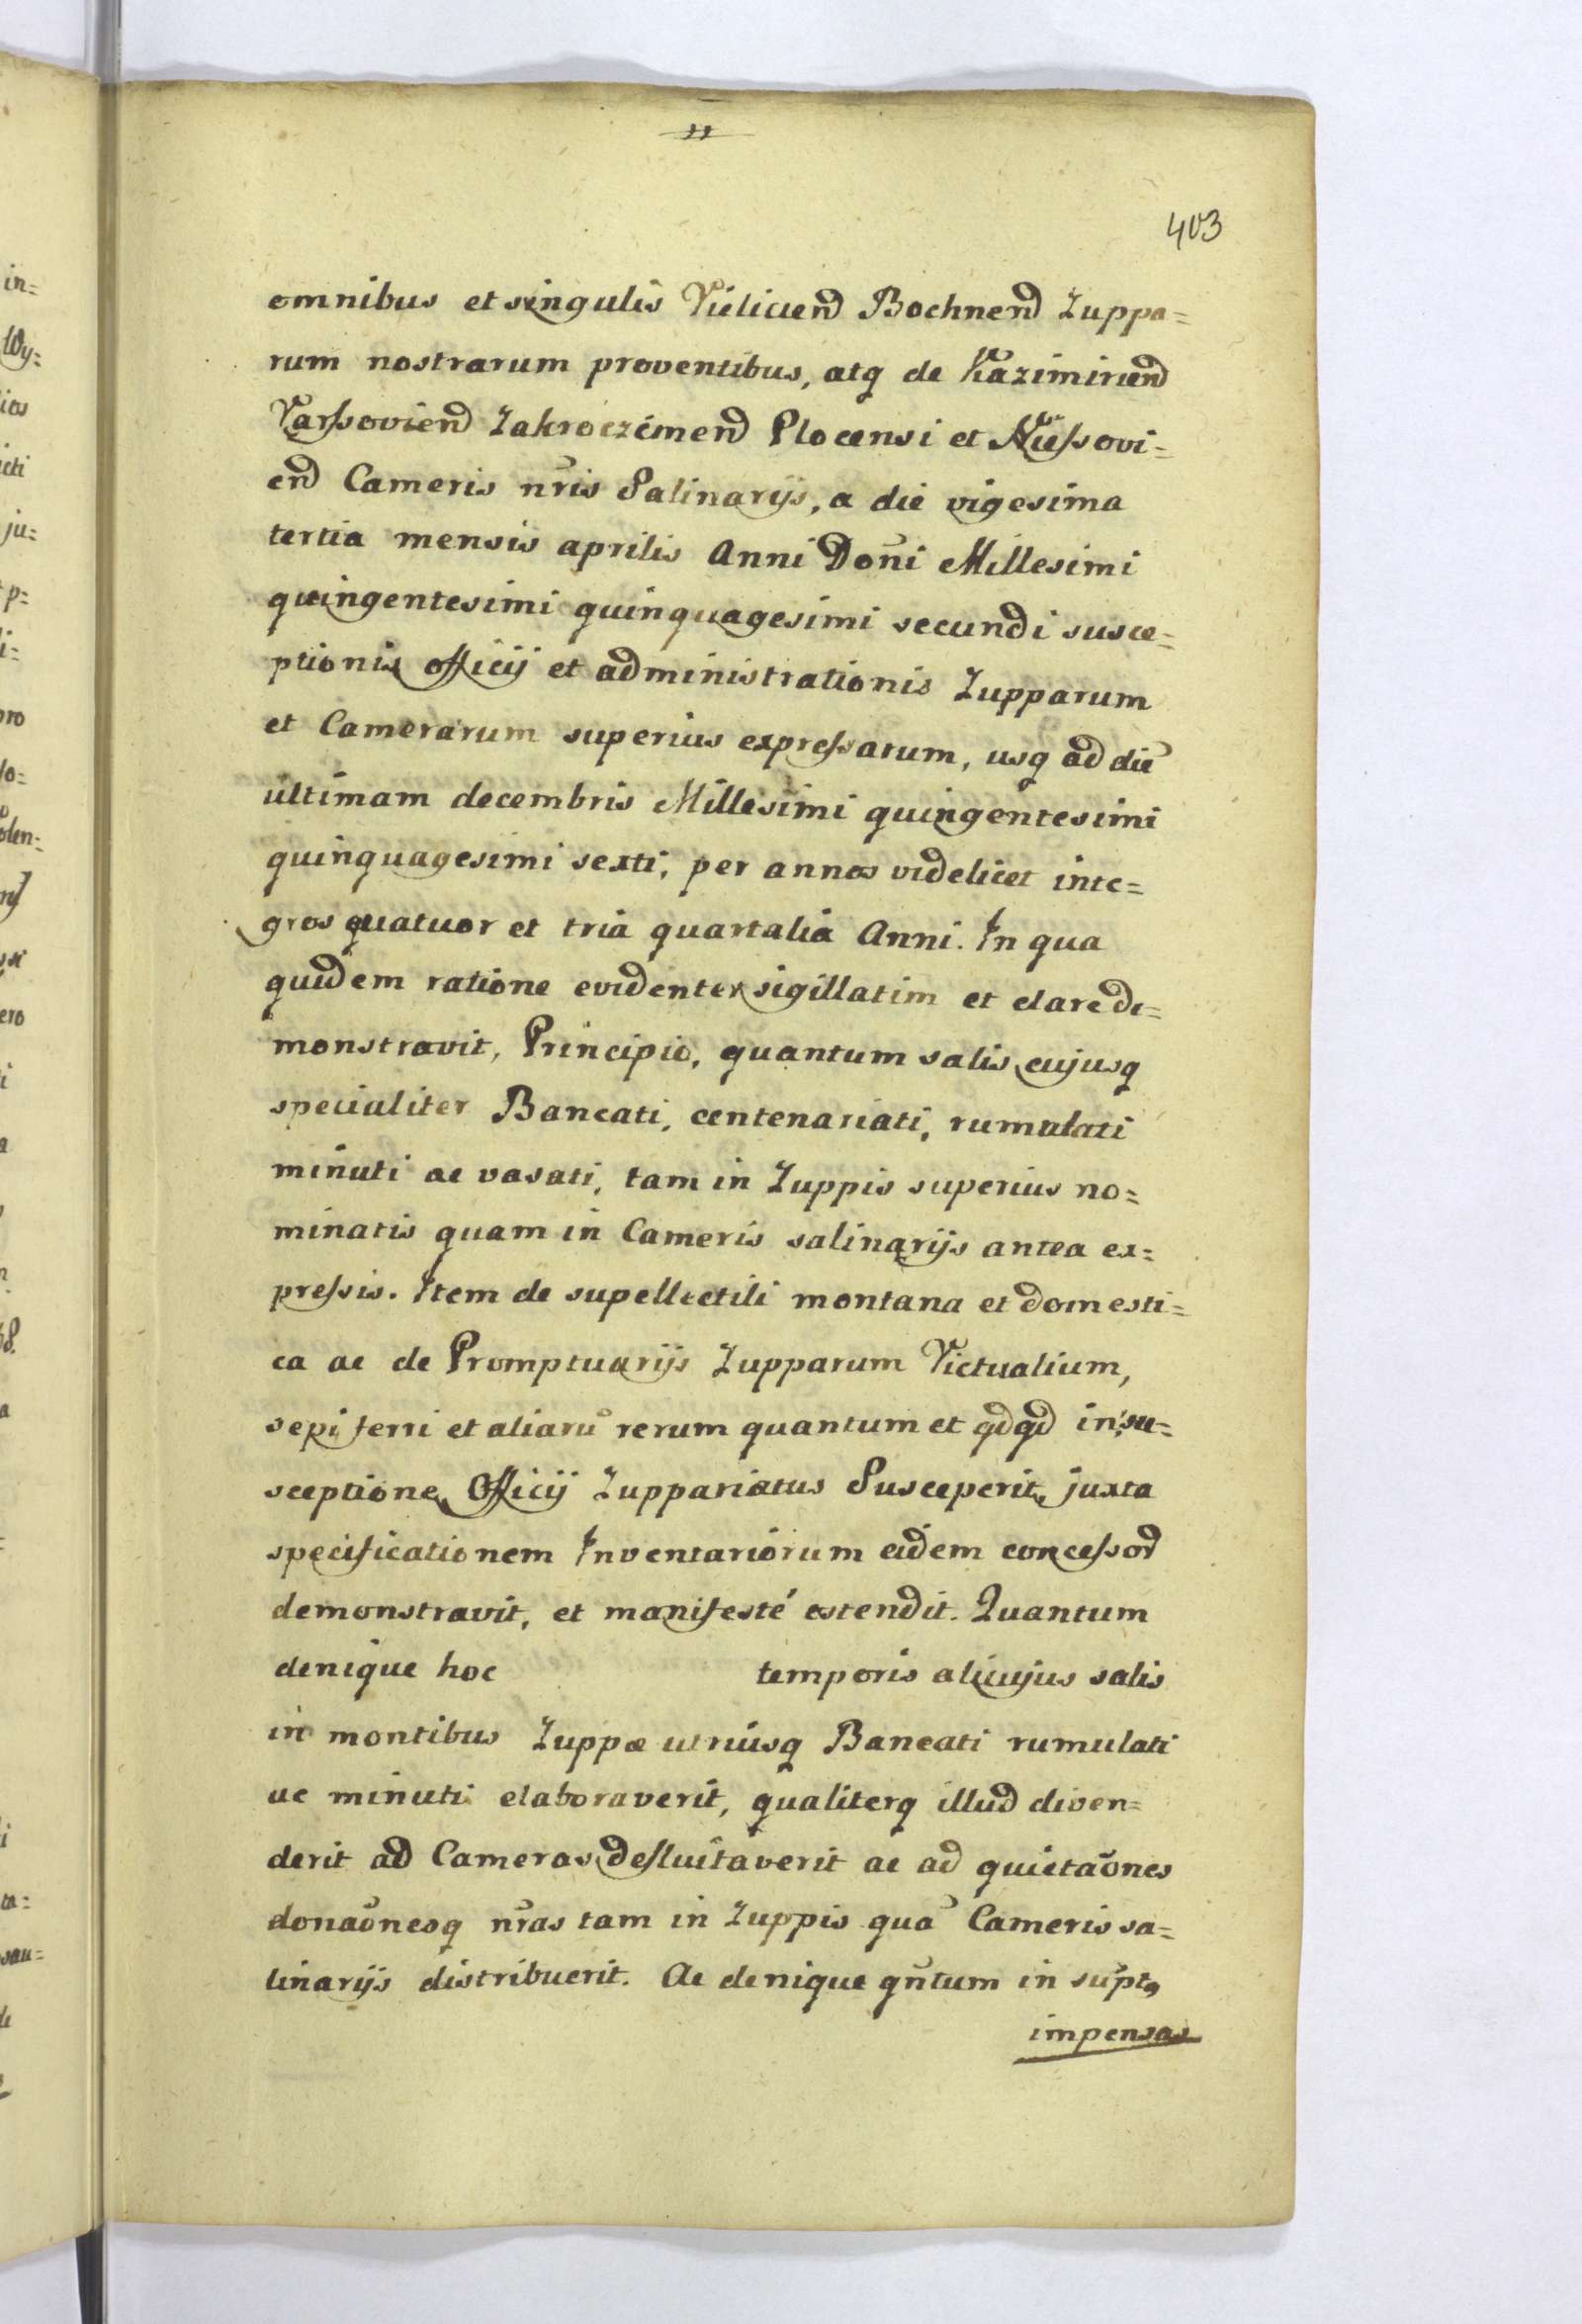 403
omnibus et singulis Vieliciend Bochnend Zuppa=
rum nostrarum proventibus, atq de Kazimiriend
Varssoviend Zakroczimend Plocensi et Niessovi=
end Cameris nr̃is Salinarijs, a die vigesima
tertia mensis aprilis Anni Doñi Millesimi
quingentesimi quinquagesimi secundi susce=
ptionis officij et administrationis Zupparum
et Camerarum superius expressarum, usq ad diẽ
ultimam decembris Millesimi quingentesimi
quinquagesimi sexti, per annos videlicet inte=
gros quatuor et tria quartalia Anni. In qua
quidem ratione evidenter sigillatim et clare de=
monstravit, Principio, quantum salis cujusq
specialiter Bancati, centenariati, rumulati
minuti ac vasati, tam in Zuppis superius no=
minatis quam in Cameris salinarijs antea ex=
pressis. Item de supellectili montana et domesti=
ca ac de Promptuarijs Zupparum Victualium,
sepi ferri et aliarũ rerum quantum et qdqd in su=
sceptione Officij Zuppariatus Susceperit, juxta
specificationem Inventariorum eidem concessord
demonstravit, et manifesté ostendit. Quantum
denique hoc temporis alicujus salis
in montibus Zuppæ utriusq Bancati rumulati
ac minuti elaboraverit, qualiterq illud diven=
derit ad Cameras defluitaverit ac ad quietaõnes
donaõnesq nr̃as tam in Zuppis quã Cameris sa=
linarijs distribuerit. Ac denique qñtum in supt,
impensas